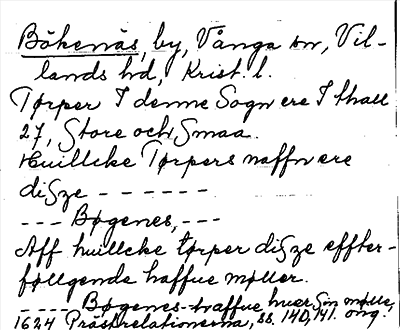 Bökenäs, by, Vånga sn, Vil-
lands hd, Krist. l.
Tørper I denne Sogn ere I thall
27, Store och Smaa.
Huillcke Tørpers naffn ere
diſze - - - - - -
- - - Bøgenes, - - -
Aff huillcke tørper diſze effter-
føllgende haffue møller.
- - - - - Bøgenes haffue huer Sin mølle,
1624 Prästrelationerna, ss. 140, 141. orig.